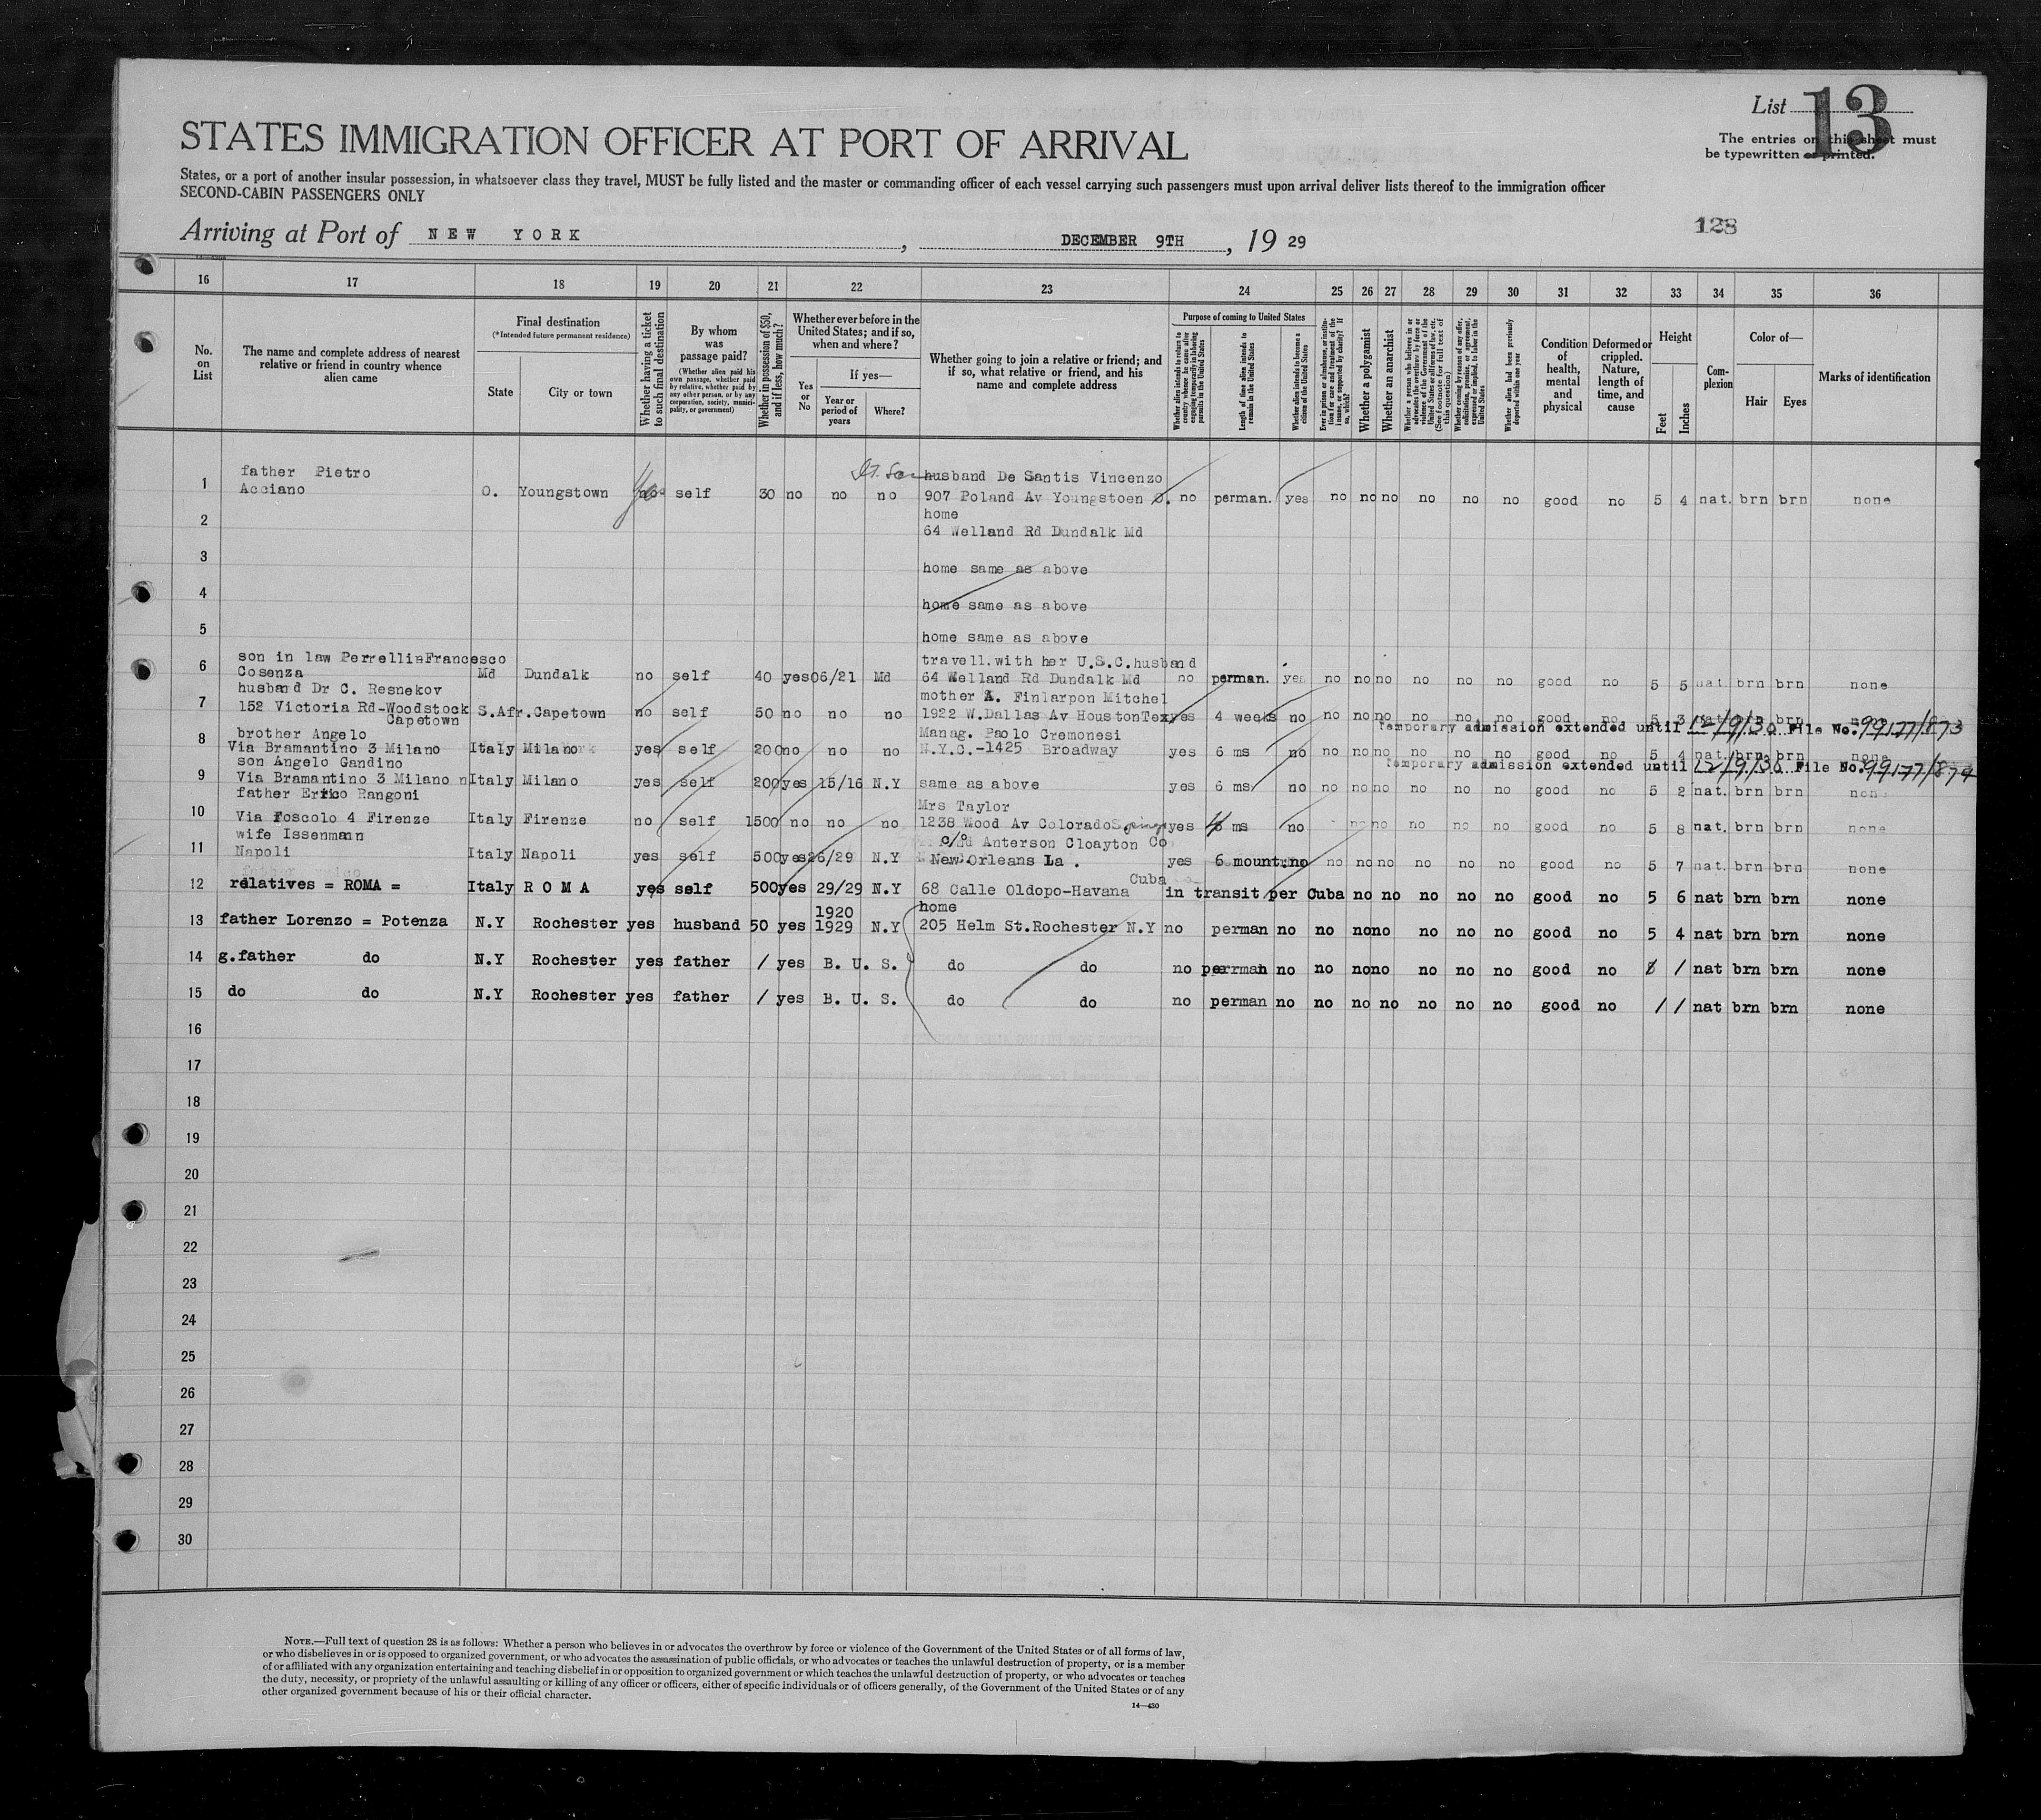 List 13
The entries on this sheet must
be typewritten or printed.
STATES IMMIGRATION OFFICER AT PORT OF ARRIVAL
States, or a port of another insular possession, in whatsoever class they travel, MUST be fully listed and the master or commanding officer of each vessel carrying such passengers must upon arrival deliver lists thereof to the immigration officer
SECOND-CABIN PASSENGERS ONLY
128
Arriving at Port of NEW YORK, DECEMBER 9TH, 19 29
16 17 18 19 20 21 22 23 24 25 26 27 28 29 30 31 32 33 34 35 36
No. on List
The name and complete address of nearest relative or friend in country whence alien came
Final destination (*Intended future permanent residence)
State
City or town
Whether having a ticket to such final destination
By whom was passage paid? (Whether alien paid his own passage, whether paid by relative, whether paid by any other person, or by any corporation, society, municipality, or government)
Whether in possession of $50, and if less, how much?
Whether ever before in the United States; and if so, when and where?
Yes or No
If yes—
Year or period of years
Where?
Whether going to join a relative or friend; and if so, what relative or friend, and his name and complete address
Purpose of coming to United States
Whether alien intends to return to country whence he came after engaging temporarily in laboring pursuits in the United States
Length of time alien intends to remain in the United States
Whether alien intends to become a citizen of the United States
Ever in prison or almshouse, or institution for care and treatment of the insane, or supported by charity? If so, which?
Whether a polygamist
Whether an anarchist
Whether a person who believes in or advocates the overthrow by force or violence of the Government of the United States or all forms of law, etc. (See footnote for full text of this question)
Whether coming by reason of any offer, solicitation, promise, or agreement, expressed or implied, to labor in the United States
Whether alien had been previously deported within one year
Condition of health, mental and physical
Deformed or crippled. Nature, length of time, and cause
Height
Feet
Inches
Complexion
Color of—
Hair
Eyes
Marks of identification
father Pietro husband De Santis Vincenzo
1 Acciano O. Youngstown no self 30 no no no 907 Poland Av Youngstoen O. no perman. yes no no no no no no good no 5 4 nat. brn brn none
2 home
64 Welland Rd Dundalk Md
3 home same as above
4 home same as above
5 home same as above
son in law Perrellis Francesco travell. with her U.S.C. husband
6 Cosenza Md Dundalk no self 40 yes 06/21 Md 64 Welland Rd Dundalk Md no perman. yes no no no no no no good no 5 5 nat. brn brn none
husband Dr C. Resnekov mother A. Finlarpon Mitchel
7 152 Victoria Rd-Woodstock Capetown S.Afr. Capetown no self 50 no no no 1922 W.Dallas Av Houston Tex yes 4 weeks no no no no no no no good no 5 3 nat brn brn none
Temporary admission extended until 12/9/30 File No. 99177/873
brother Angelo Manag. Paolo Cremonesi
8 Via Bramantino 3 Milano Italy Milano yes self 200 no no no N.Y.C.-1425 Broadway yes 6 ms no no no no no no no good no 5 4 nat. brn brn none
Temporary admission extended until 12/9/30 File No. 99177/874
son Angelo Gandino
9 Via Bramantino 3 Milano Italy Milano yes self 200 yes 15/16 N.Y same as above yes 6 ms no no no no no no no good no 5 2 nat. brn brn none
father Errico Rangoni Mrs Taylor
10 Via Foscolo 4 Firenze Italy Firenze no self 1500 no no no 1238 Wood Av Colorado Springs yes ms no no no no no no good no 5 8 nat. brn brn none
wife Issenmann c/o Anterson Cloayton Co
11 Napoli Italy Napoli yes self 500 yes 26/29 N.Y New Orleans La . yes 6 mount. no no no no no no no good no 5 7 nat. brn brn none
12 relatives = ROMA = Italy ROMA yes self 500 yes 29/29 N.Y 68 Calle Oldopo-Havana Cuba in transit per Cuba no no no no no good no 5 6 nat brn brn none
home
13 father Lorenzo = Potenza N.Y Rochester yes husband 50 yes 1920 1929 N.Y 205 Helm St. Rochester N.Y no perman no no no no no no no good no 5 4 nat brn brn none
14 g.father do N.Y Rochester yes father / yes B. U. S. do do no perrman no no no no no no no good no / nat brn brn none
15 do do N.Y Rochester yes father / yes B. U. S. do do no perman no no no no no no no good no / / nat brn brn none
16
17
18
19
20
21
22
23
24
25
26
27
28
29
30
NOTE.—Full text of question 28 is as follows: Whether a person who believes in or advocates the overthrow by force or violence of the Government of the United States or of all forms of law,
or who disbelieves in or is opposed to organized government, or who advocates the assassination of public officials, or who advocates or teaches the unlawful destruction of property, or is a member
of or affiliated with any organization entertaining and teaching disbelief in or opposition to organized government or which teaches the unlawful destruction of property, or who advocates or teaches
the duty, necessity, or propriety of the unlawful assaulting or killing of any officer or officers, either of specific individuals or of officers generally, of the Government of the United States or of any
other organized government because of his or their official character.
14—430